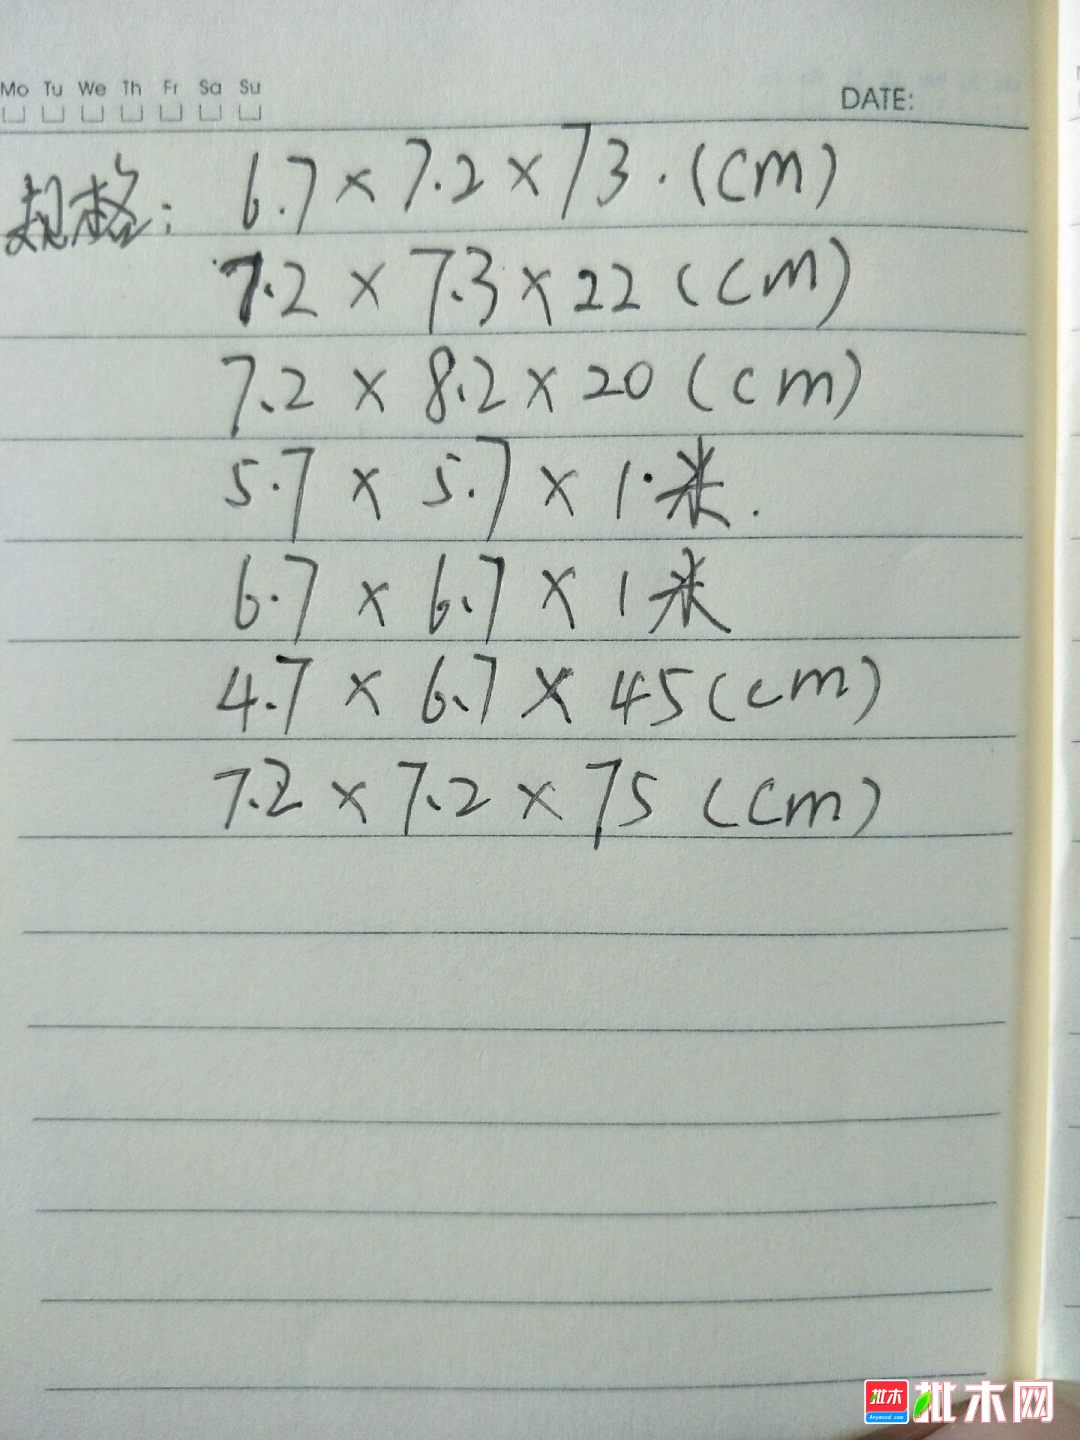 Mo Tu We Th Fr Sa Su
DATE:
规格: 6.7 × 7.2 × 73.(cm)
7.2 × 7.3 × 22 (cm)
7.2 × 8.2 × 20 (cm)
5.7 × 5.7 × 1·米.
6.7 × 6.7 × 1米
4.7 × 6.7 × 45(cm)
7.2 × 7.2 × 75 (cm)
批木 Anywood.com 批木网